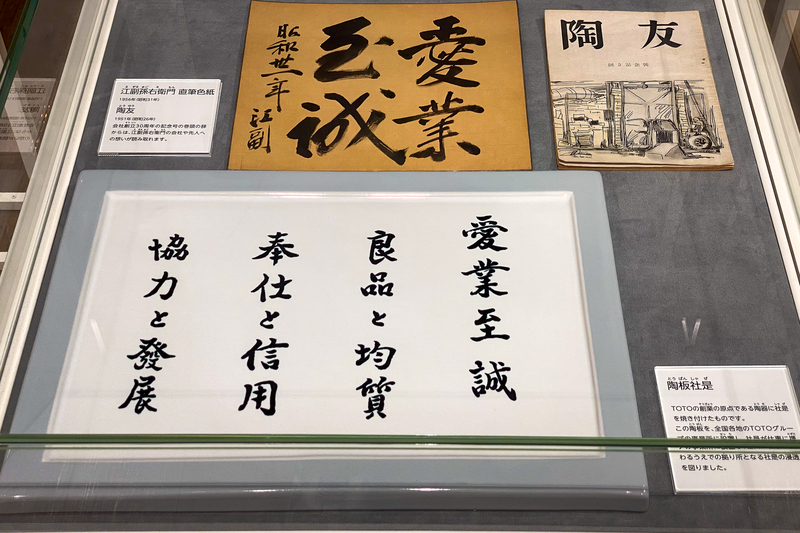 江副孫右衛門 直筆色紙
1956年(昭和31年)
陶友
1951年(昭和26年)
会社創立30周年の記念号の巻頭の辞
からは、江副孫右衛門の会社や先人へ
の想いが読み取れます。
愛業
至誠
昭和卅一年
江副
陶友
愛業至誠
良品と均質
奉仕と信用
協力と發展
陶板社是
TOTOの創業の原点である陶器に社是
を焼き付けたものです。
この陶板を、全国各地のTOTOグルー
わるうえでの拠り所となる社是の浸透
を図りました。